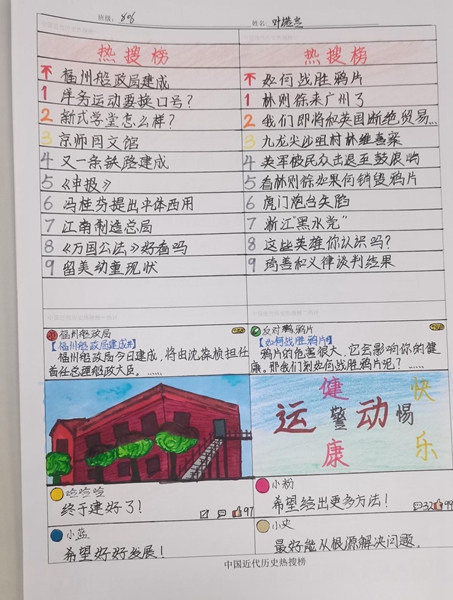 班级：806 姓名：叶梁杰
热搜榜
福州船政局建成
1 洋务运动要换口号？
2 新式学堂怎么样？
3 京师同文馆
4 又一条铁路建成
5 《申报》
6 冯桂芬提出中体西用
7 江南制造总局
8 《万国公法》好看吗
9 留美幼童现状
热搜榜
如何战胜鸦片
1 林则徐来广州了
2 我们即将和英国断绝贸易...
3 九龙尖沙咀村林维喜案
4 英军被民众击退至鼓浪屿
5 看林则徐如何销毁鸦片
6 虎门炮台失陷
7 浙江"黑水党"
8 这些英雄你认识吗？
9 琦善和义律谈判结果
福州船政局
【福州船政局建成#】
福州船政局今日建成，将由沈葆桢担任
首任总理船政大臣。……
哈哈哈
终于建好了！
97
小蓝
希望好好发展！
反对鸦片
【如何战胜鸦片#】
鸦片的危害很大，它会影响你的健
康。那我们到如何战胜鸦片呢？……
健 快
运 警 动 惕
康 乐
小粉
希望给出更多方法！
32 99
小史
最好能从根源解决问题.
中国近代历史热搜榜